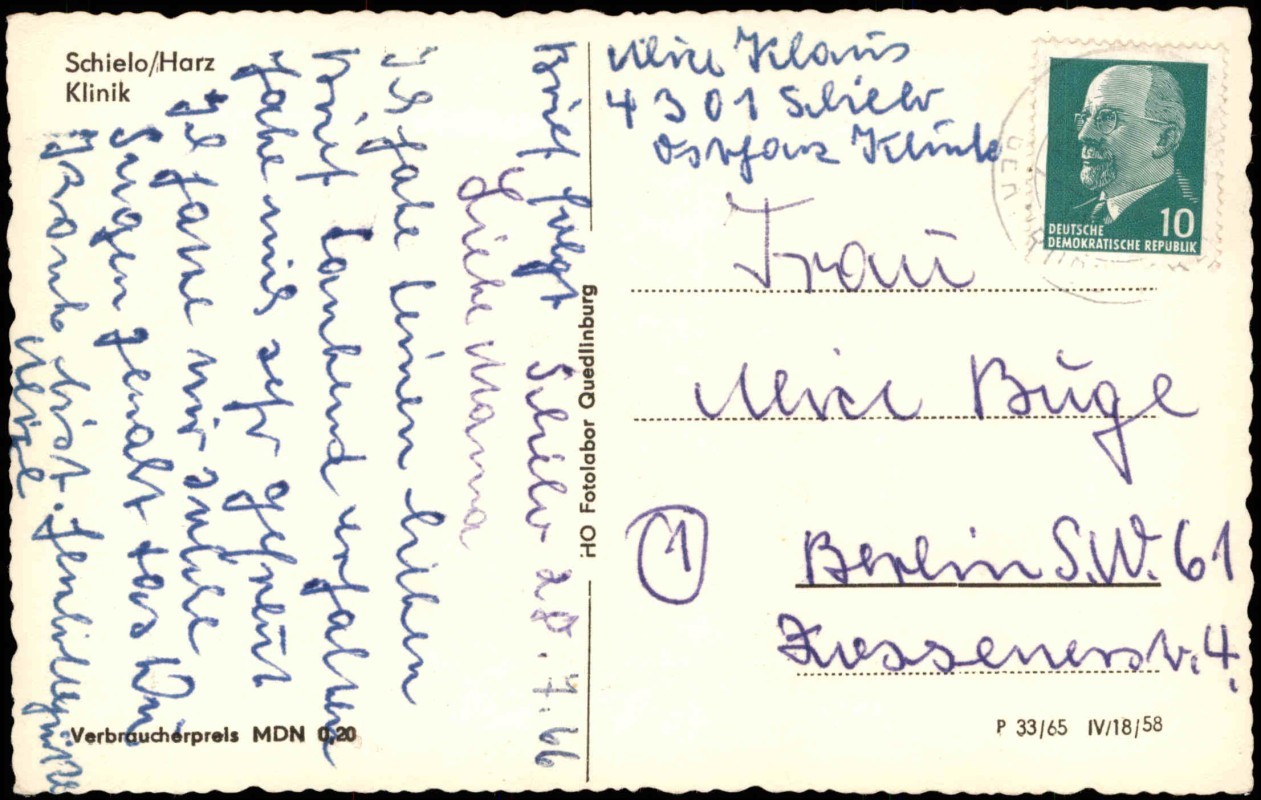 Schielo/Harz
Klinik
Brief folgt Schielo 28.7.66
Liebe Mama
Ich habe deinen lieben
Brief dankend erhalten
habe mich sehr gefreut
Ich habe mir solche
Sorgen gemacht das Du
Krank bist.
Verbraucherpreis MDN 0,20
HO Fotolabor Quedlinburg
Klaus
4301 Schielo
Ostharz Klinik
DEUTSCHE
DEMOKRATISCHE REPUBLIK
10
Frau
Büge
1 Berlin S.W. 61
Zossenerstr. 4.
P 33/65 IV/18/58